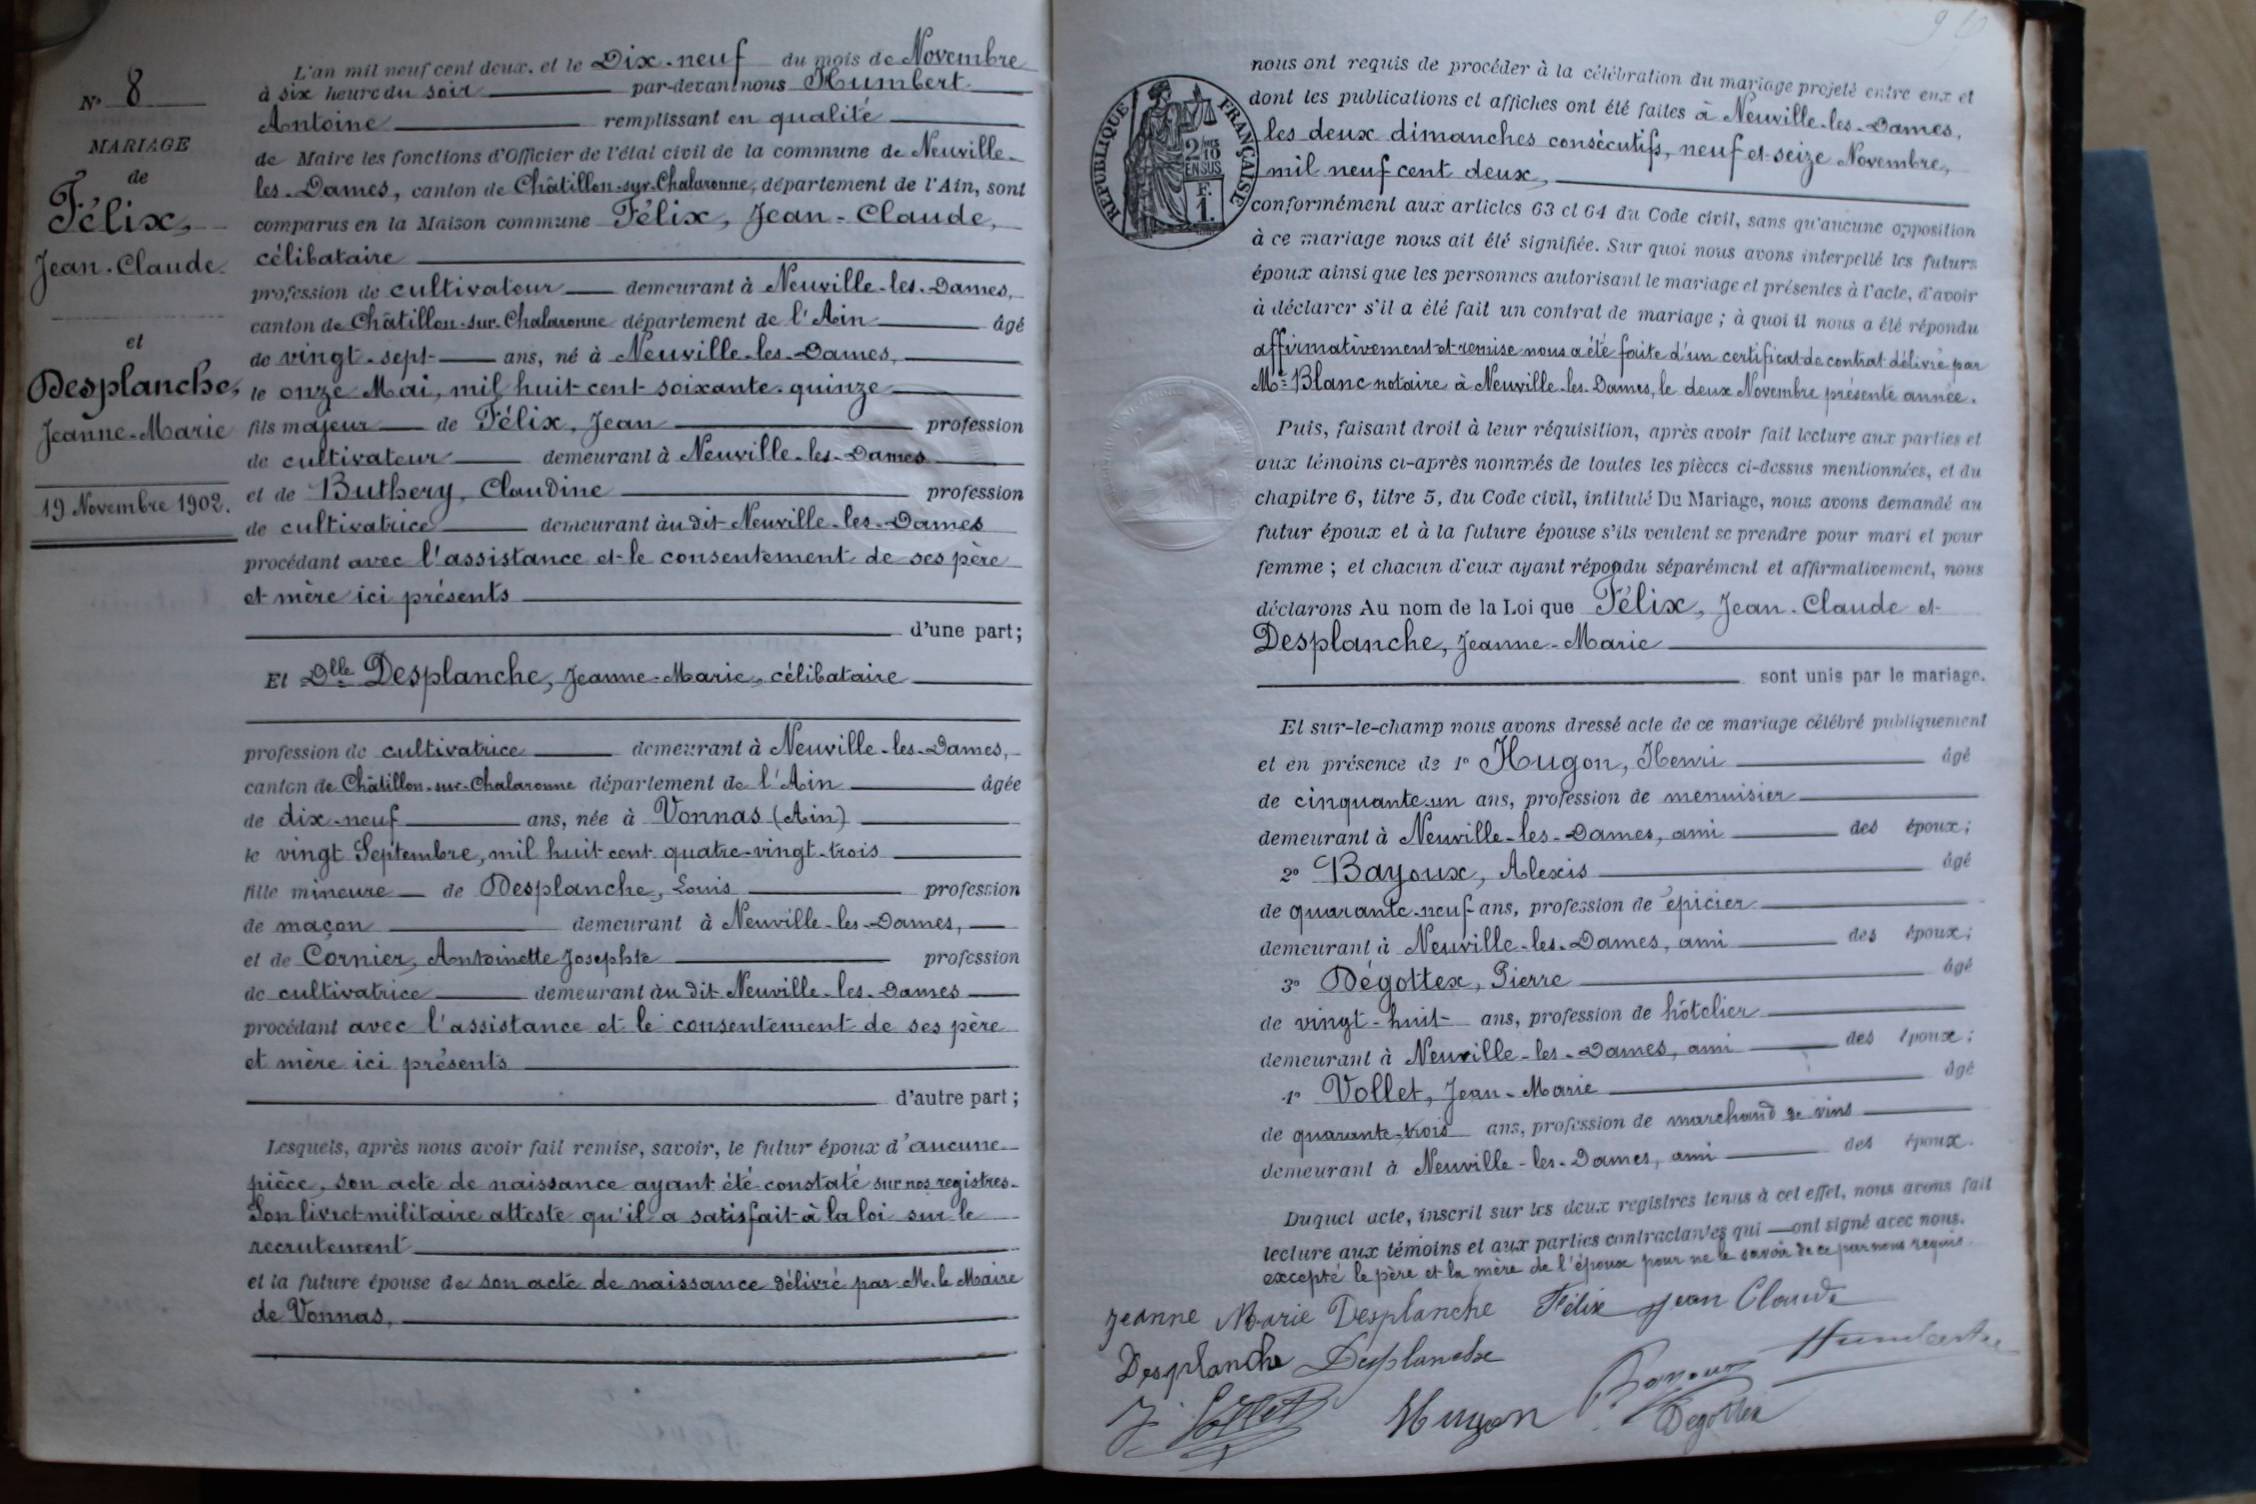 N° 8
MARIAGE
de
Félix,
Jean-Claude
et
Desplanche,
Jeanne-Marie
19 Novembre 1902.
L'an mil neuf cent deux, et le Dix-neuf du mois de Novembre
à six heure du soir par-devant nous Humbert
Antoine remplissant en qualité
de Maire les fonctions d'Officier de l'état civil de la commune de Neuville-
les-Dames, canton de Châtillon-sur-Chalaronne, département de l'Ain, sont
comparus en la Maison commune Félix, Jean-Claude,
célibataire
profession de cultivateur demeurant à Neuville-les-Dames,
canton de Châtillon-sur-Chalaronne département de l'Ain âgé
de vingt-sept ans, né à Neuville-les-Dames,
le onze Mai, mil huit cent soixante-quinze
fils majeur de Félix, Jean profession
de cultivateur demeurant à Neuville-les-Dames
et de Buthery, Claudine profession
de cultivatrice demeurant au dit Neuville-les-Dames
procédant avec l'assistance et le consentement de ses père
et mère ici présents
d'une part;
Et Dlle Desplanche, Jeanne-Marie, célibataire
profession de cultivatrice demeurant à Neuville-les-Dames,
canton de Châtillon-sur-Chalaronne département de l'Ain âgée
de dix-neuf ans, née à Vonnas (Ain)
le vingt Septembre, mil huit cent quatre-vingt-trois
fille mineure de Desplanche, Louis profession
de maçon demeurant à Neuville-les-Dames,
et de Cornier, Antoinette Josephte profession
de cultivatrice demeurant au dit Neuville-les-Dames
procédant avec l'assistance et le consentement de ses père
et mère ici présents
d'autre part;
Lesquels, après nous avoir fait remise, savoir, le futur époux d'aucune
pièce, son acte de naissance ayant été constaté sur nos registres.
Son livret militaire atteste qu'il a satisfait à la loi sur le
recrutement
et la future épouse de son acte de naissance délivré par M. le Maire
de Vonnas,
RÉPUBLIQUE FRANÇAISE
2/10
EN SUS
F.
1.
nous ont requis de procéder à la célébration du mariage projeté entre eux et
dont les publications et affiches ont été faites à Neuville-les-Dames,
les deux dimanches consécutifs, neuf et seize Novembre,
mil neuf cent deux,
conformément aux articles 63 et 64 du Code civil, sans qu'aucune opposition
à ce mariage nous ait été signifiée. Sur quoi nous avons interpellé les futurs
époux ainsi que les personnes autorisant le mariage et présentes à l'acte, d'avoir
à déclarer s'il a été fait un contrat de mariage; à quoi il nous a été répondu
affirmativement et remise nous a été faite d'un certificat de contrat délivré par
Me Blanc notaire à Neuville-les-Dames, le deux Novembre présente année.
Puis, faisant droit à leur réquisition, après avoir fait lecture aux parties et
aux témoins ci-après nommés de toutes les pièces ci-dessus mentionnées, et du
chapitre 6, titre 5, du Code civil, intitulé Du Mariage, nous avons demandé au
futur époux et à la future épouse s'ils veulent se prendre pour mari et pour
femme; et chacun d'eux ayant répondu séparément et affirmativement, nous
déclarons Au nom de la Loi que Félix, Jean-Claude et
Desplanche, Jeanne-Marie
sont unis par le mariage.
Et sur-le-champ nous avons dressé acte de ce mariage célébré publiquement
et en présence de 1° Hugon, Henri âgé
de cinquante-un ans, profession de menuisier
demeurant à Neuville-les-Dames, ami des époux;
2° Bayoux, Alexis âgé
de quarante-neuf ans, profession de épicier
demeurant à Neuville-les-Dames, ami des époux;
3° Dégottex, Pierre âgé
de vingt-huit ans, profession de hôtelier
demeurant à Neuville-les-Dames, ami des époux;
4° Vollet, Jean-Marie âgé
de quarante-trois ans, profession de marchand de vins
demeurant à Neuville-les-Dames, ami des époux.
Duquel acte, inscrit sur les deux registres tenus à cet effet, nous avons fait
lecture aux témoins et aux parties contractantes qui ont signé avec nous.
excepté le père et la mère de l'époux pour ne le savoir de ce par nous requis.
Jeanne Marie Desplanche Félix Jean Claude
Desplanche Desplanche Humbert
J. Vollet Hugon Bayoux Dégottex